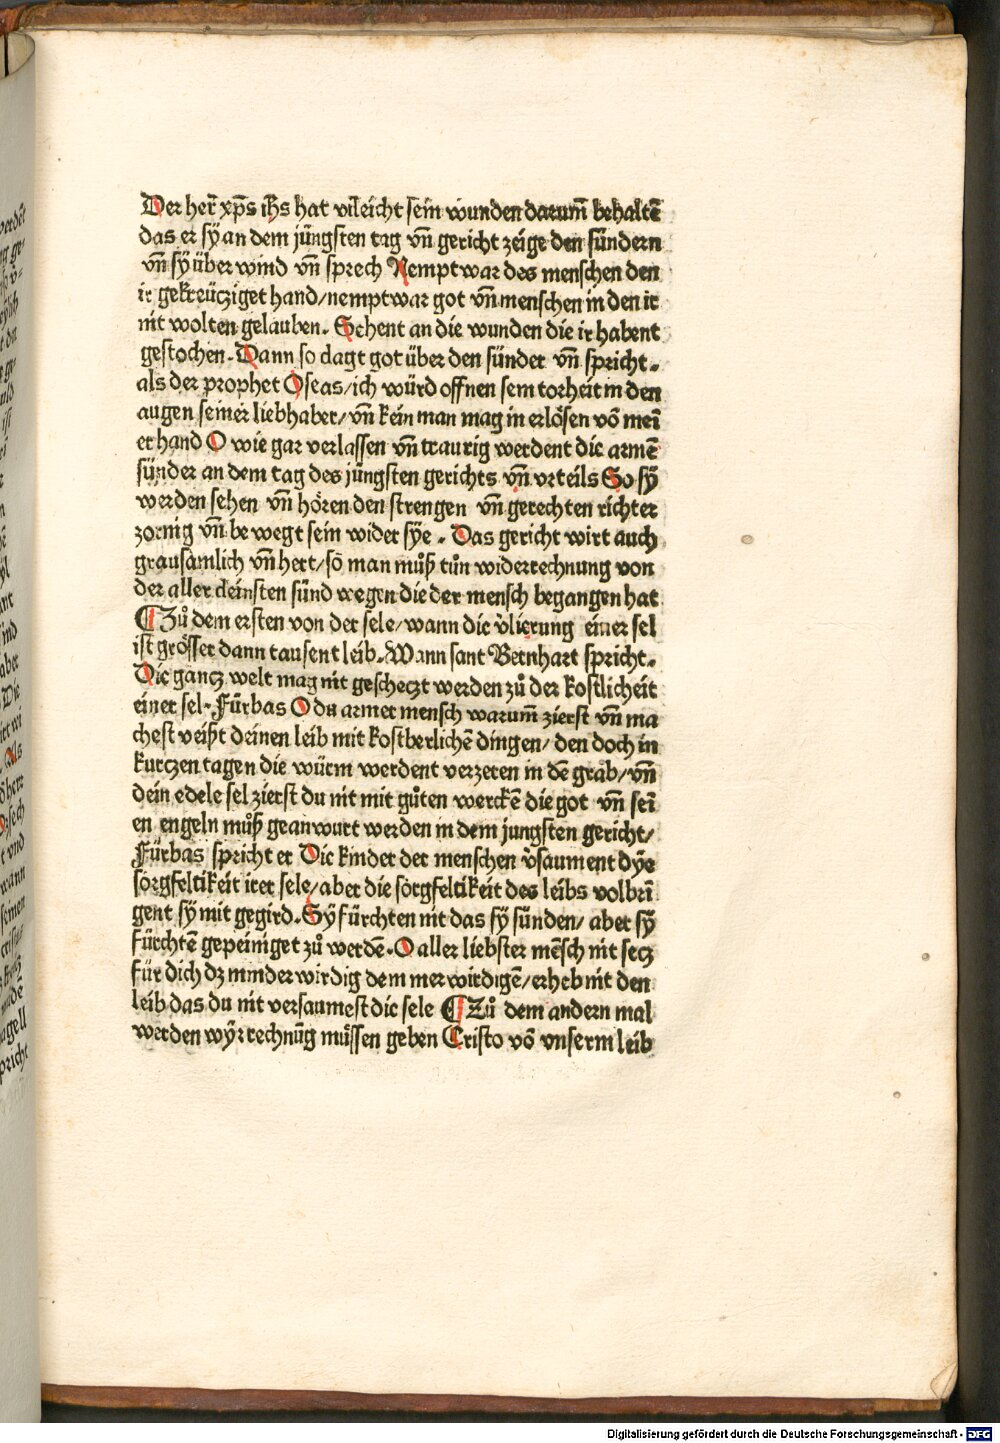 Der her̄ xp̄s ih̄s hat vileicht sein wunden darum̄ behaltē
das er sÿ an dem jüngsten tag vn̄ gericht zeige den sündern
vn̄ sÿ über wind vn̄ sprech Nempt war des menschen den
ir gekreücziget hand/nempt war got vn̄ menschen in den ir
nit wolten gelauben. Sehent an die wunden die ir habent
gestochen. Dann so clagt got über den sünder vn̄ spricht.
als der prophet Oseas/ich würd offnen sein torheit in den
augen seiner liebhaber/vn̄ kein man mag in erlösen vō mei
er hand O wie gar verlassen vn̄ traurig werdent die armē
sünder an dem tag des jüngsten gerichts vn̄ vrteils So sÿ
werden sehen vn̄ hören den strengen vn̄ gerechten richter
zornig vn̄ bewegt sein wider sÿe. Das gericht wirt auch
grausamlich vn̄ hert/so man můß tůn widerrechnung von
der aller cleinsten sünd wegen die der mensch begangen hat
¶ Zů dem ersten von der sele/wann die v̓lierung einer sel
ist grösser dann tausent leib. Wann sant Bernhart spricht.
Die gancz welt mag nit gescheczt werden zů der kostlicheit
einer sel. Fürbas O du armer mensch warum̄ zierst vn̄ ma
chest veißt deinen leib mit kostberlichē dingen/ den doch in
kurczen tagen die würm werdent verzeren in dē grab/vn̄
dein edele sel zierst du nit mit gůten werckē die got vn̄ sei
en engeln můß geanwurt werden in dem jungsten gericht/
Fürbas spricht er Die kinder der menschen v̓saument dÿe
sorgfeltikeit irer sele/aber die sorgfeltikeit des leibs volbri
gent sÿ mit gegird. Sÿ fürchten nit das sÿ sünden/ aber sÿ
fürchtē gepeiniget zů werdē. O aller liebster mēsch nit secz
für dich dz minder wirdig dem mer wirdigē/erheb nit den
leib das du nit versaumest die sele ¶ Zů dem andern mal
werden wÿr rechnūg müssen geben Cristo vō vnserm leib
Digitalisierung gefördert durch die Deutsche Forschungsgemeinschaft - DFG